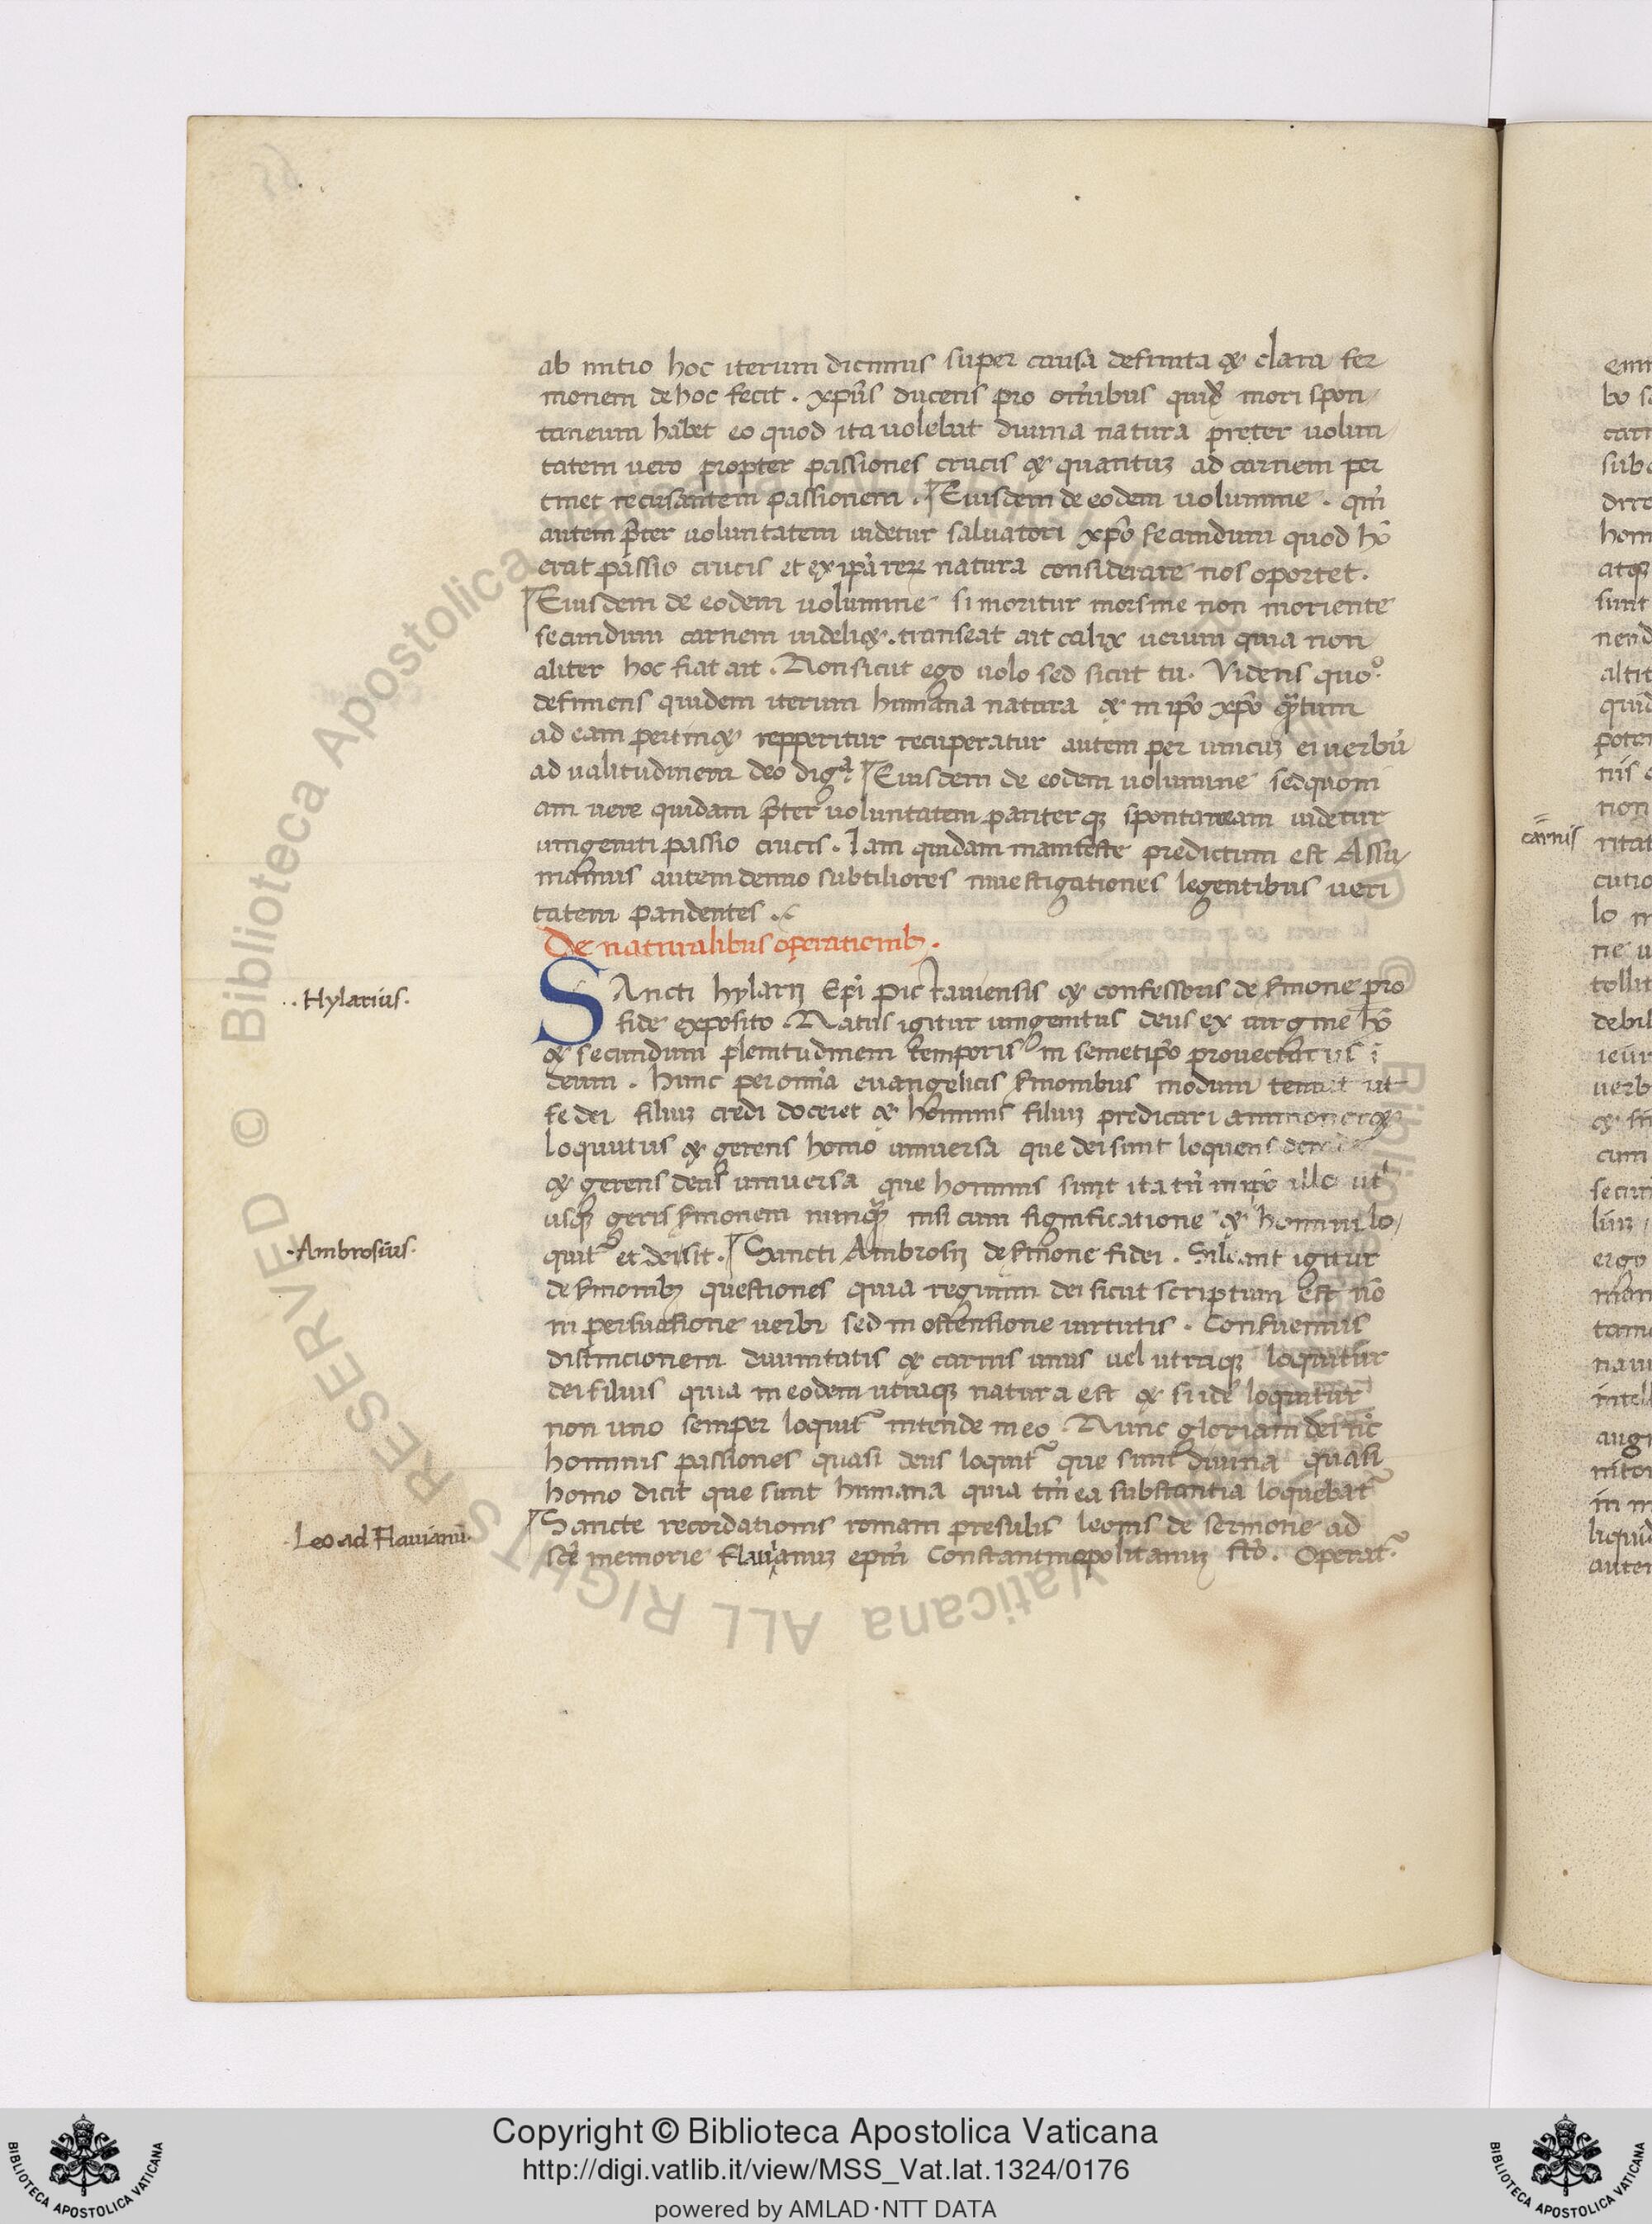 ab initio hoc iterum dicimus super causa definita et clara ser
monem de hoc fecit . xpūs ducens pro oīnibus quidē mori spon/
taneum habet eo quod ita volebat divina natura preter volun/
tatem vero propter passiones crucis et quantuz ad carnem per
tinet recusantem passionem . Eiusdem de eodem volumine . qm̄
autem p̄ter voluntatem videtur salvatori xp̄o secundum quod hō
erat passio crucis et ex ip̄a rerz natura considerare nos oportet .
Eiusdem de eodem volumine si moritur mors me non moriente
secundum carnem videlicet . transeat ait calix verum quia non
aliter hoc fiat ait . Non sicut ego volo sed sicut tu . Videns quo
definiens quidem iterum humana natura et in ip̄o xp̄o quātum
ad eam pertinet repperitur recuperatur autem per unicuz ei verbū
ad valitudinem deo dig. Eiusdem de eodem volumine sed quoni
am vere quidam p̄ter voluntatem pariterqz spontaneam videtur
unigeniti passio crucis . Iam quidam manifeste predictum est Assu/
mamus autem denuo subtiliores investigationes legentibus veri
tatem pandentes .
De naturalibus operationib; .
. . Hylarius .
SAncti hylarij Epī pictaviensis et confessoris de s̄mone pro
fide exposito . Natus igitur unigenitus deus ex virgine hō
et secundum plenitudinem temporis in semetip̄o provecturus ī
deum . hunc per omīa evangelicis s̄monibus modum tenuit ut
se dei filiuz credi doceret et hominis filiuz predicari ammoneret
loquutus et gerens homo universa que dei sunt loquens
et gerens deus universa que hominis sunt ita tn̄ in ip̄o illo ut
usqz geris s̄monem nunqz nisi cum significatione et homini lo/
. Ambrosius .
quit̄ et dei sit . Sancti Ambrosij de s̄mone fidei . Sileant igitur
de s̄monib; questiones quia regnum dei sicut scriptum est nō
in persuasione verbi sed in ostensione virtutis . Conservemus
distincionem divinitatis et carnis unus vel utraqz loquitur
dei filius quia in eodem utraqz natura est et si idē loquitur
non uno semper loquit̄ intende in eo Nunc gloriam dei nc̄
hominis passiones quasi deus loquit̄ que sunt divina quasi
homo dicit que sunt humana quia tn̄ ea substantia loquebat̄
. Leo ad Flavianū .
Sancte recordationis romam presulis leonis de sermone ad
scē memorie flavianuz epm̄ Constantinopolitanuz sc̄o . Operat̄ .
carnis
Copyright © Biblioteca Apostolica Vaticana
http://digi.vatlib.it/view/MSS_Vat.lat.1324/0176
powered by AMLAD·NTT DATA